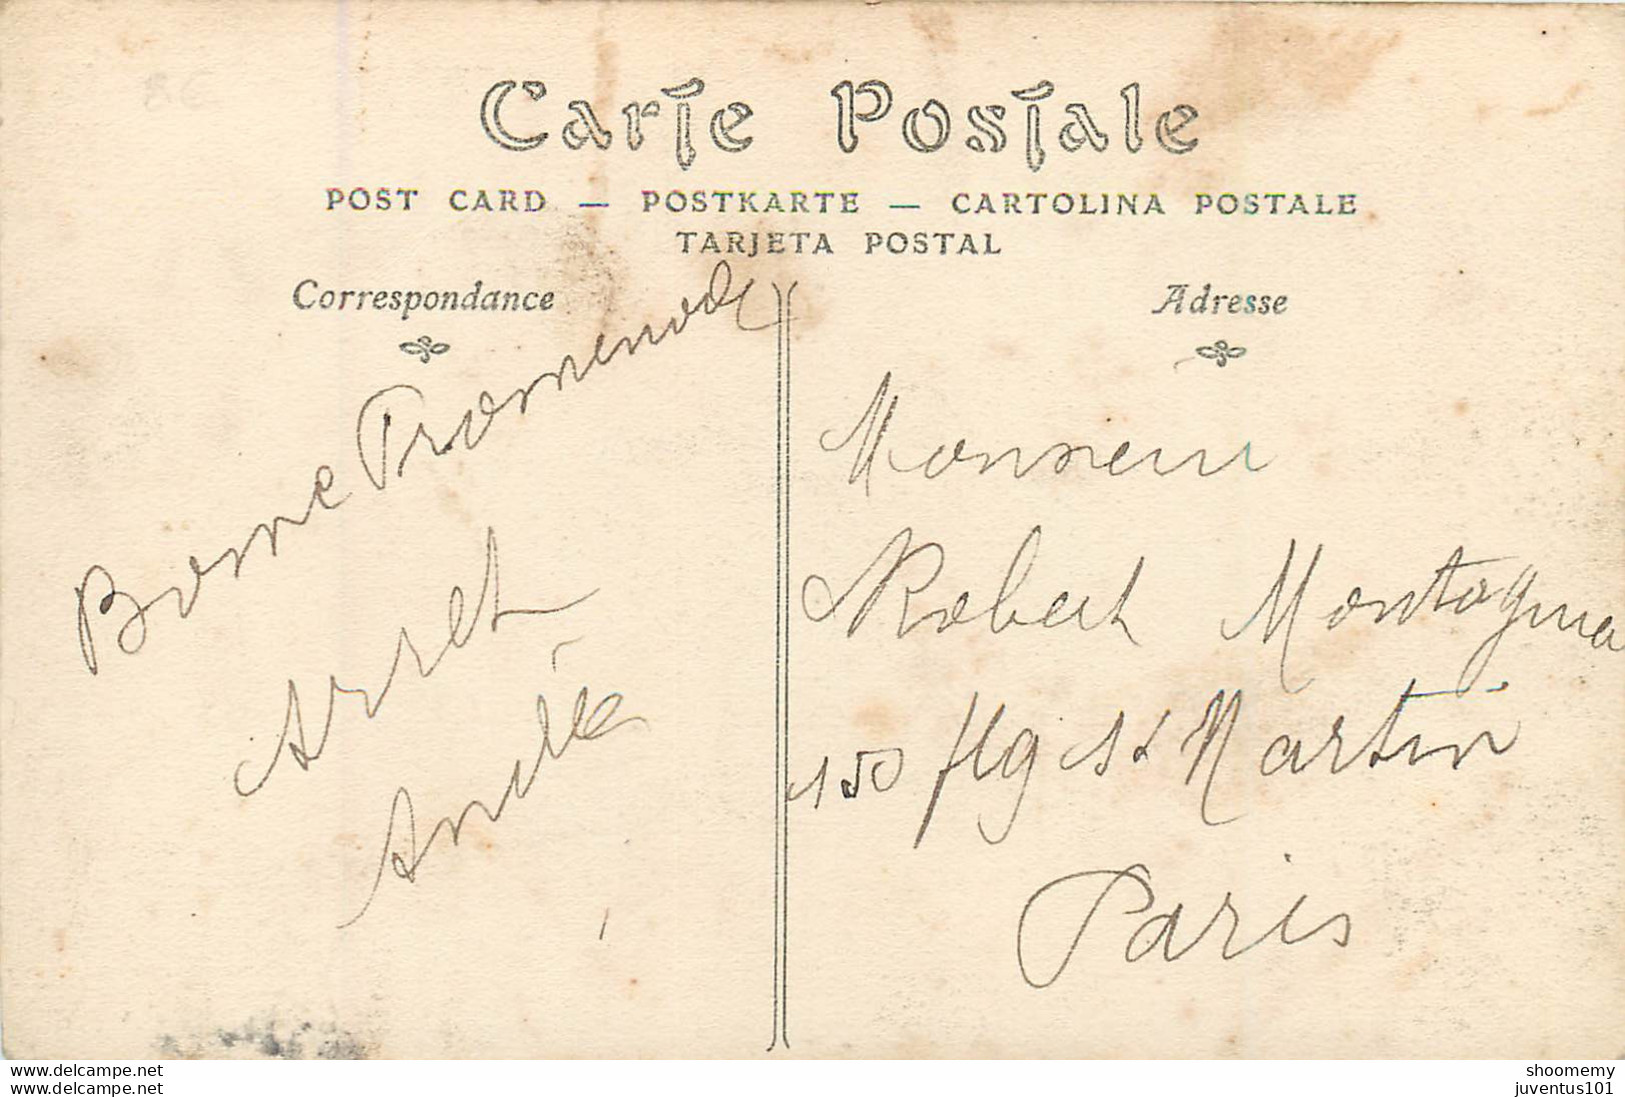 Carte Postale
POST CARD — POSTKARTE — CARTOLINA POSTALE
TARJETA POSTAL
Correspondance
Bonne Promenade
Andrée
Adresse
Monsieur
Robert Montagne
150 fbg St Martin
Paris
www.delcampe.net
www.delcampe.net
shoomemy
juventus101